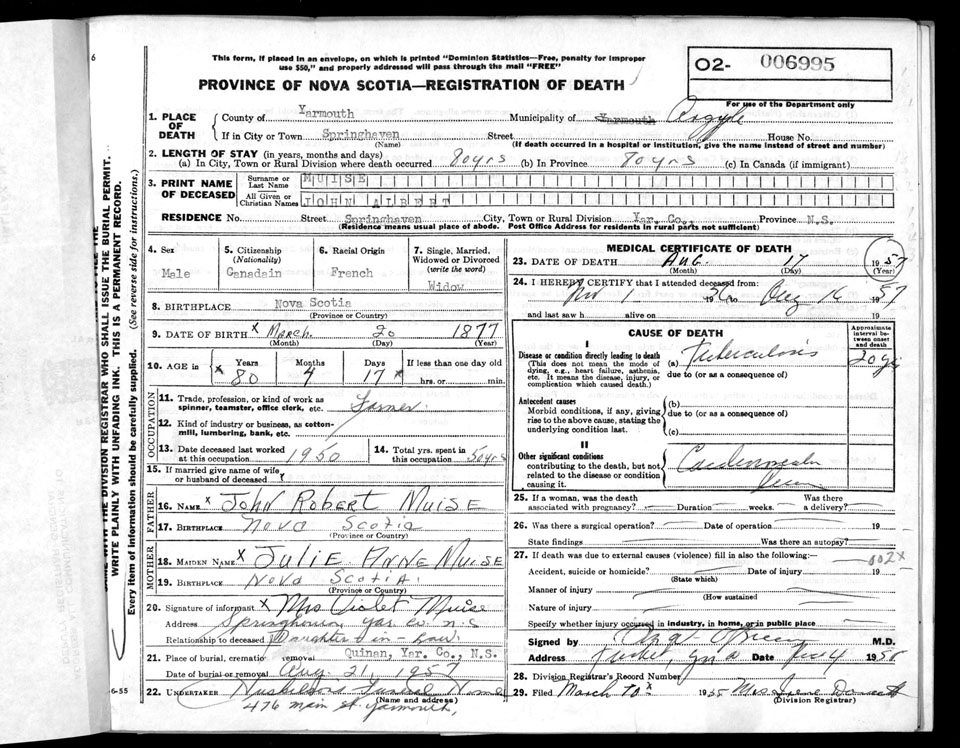 6
This form, if placed in an envelope, on which is printed "Dominion Statistics—Free, penalty for improper
use $50," and properly addressed will pass through the mail "FREE"
O2- 006995
For use of the Department only
PROVINCE OF NOVA SCOTIA—REGISTRATION OF DEATH
WRITE PLAINLY WITH UNFADING INK. THIS IS A PERMANENT RECORD.
Every item of information should be carefully supplied. (See reverse side for instructions.)
1. PLACE OF DEATH County of Yarmouth Municipality of Yarmouth Argyle
If in City or Town Springhaven Street House No.
(Name) (If death occurred in a hospital or institution, give the name instead of street and number)
2. LENGTH OF STAY (in years, months and days)
(a) In City, Town or Rural Division where death occurred 80 yrs (b) In Province 80 yrs (c) In Canada (if immigrant)
3. PRINT NAME OF DECEASED Surname or Last Name MUISE
All Given or Christian Names JOHN ALBERT
RESIDENCE No. Street Springhaven City, Town or Rural Division Yar. Co., Province N.S.
(Residence means usual place of abode. Post Office Address for residents in rural parts not sufficient)
4. Sex Male
5. Citizenship (Nationality) Canadain
6. Racial Origin French
7. Single, Married, Widowed or Divorced (write the word) Widow
8. BIRTHPLACE Nova Scotia
(Province or Country)
9. DATE OF BIRTH x March 20 1877
(Month) (Day) (Year)
10. AGE in Years x 80 Months 4 Days 17 x If less than one day old hrs. or min.
OCCUPATION
11. Trade, profession, or kind of work as spinner, teamster, office clerk, etc. Farmer
12. Kind of industry or business, as cotton-mill, lumbering, bank, etc.
13. Date deceased last worked at this occupation 1950
14. Total yrs. spent in this occupation 50 yrs
15. If married give name of wife or husband of deceased
FATHER
16. NAME x John Robert Muise
17. BIRTHPLACE Nova Scotia
(Province or Country)
MOTHER
18. MAIDEN NAME x Julie Anne Muise
19. BIRTHPLACE Nova Scotia
(Province or Country)
20. Signature of informant x Mrs Violet Muise
Address Springhaven Yar. Co. N.S
Relationship to deceased Daughter-in-law
21. Place of burial, cremation removal Quinan, Yar. Co., N.S.
Date of burial or removal Aug 21, 1957
22. UNDERTAKER Funeral Home
(Name and address)
476 Main St. Yarmouth,
6-55
MEDICAL CERTIFICATE OF DEATH
23. DATE OF DEATH Aug. 17 1957
(Month) (Day) (Year)
24. I HEREBY CERTIFY that I attended deceased from:
1 to Aug 16 1957
and last saw h alive on
CAUSE OF DEATH
Approximate interval between onset and death
I
Disease or condition directly leading to death
(This does not mean the mode of dying, e.g., heart failure, asthenia, etc. It means the disease, injury, or complication which caused death.)
(a) Tuberculosis
due to (or as a consequence of)
Antecedent causes
Morbid conditions, if any, giving rise to the above cause, stating the underlying condition last.
(b)
due to (or as a consequence of)
(c)
II
Other significant conditions
contributing to the death, but not related to the disease or condition causing it.
25. If a woman, was the death associated with pregnancy? Duration weeks. Was there a delivery?
26. Was there a surgical operation? Date of operation 19
State findings Was there an autopsy?
27. If death was due to external causes (violence) fill in also the following:— 002x
Accident, suicide or homicide? Date of injury 19
(State which)
Manner of injury
(How sustained
Nature of injury
Specify whether injury occurred in industry, in home, or in public place
Signed by M.D.
Address Date
28. Division Registrar's Record Number
29. Filed March 10 Mrs Irene
(Division Registrar)